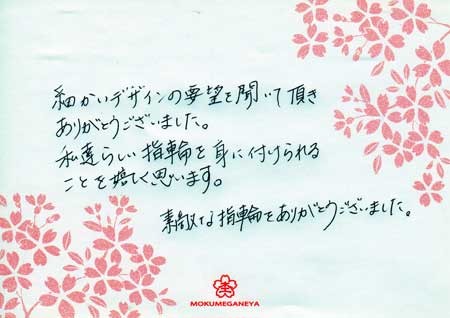 細かいデザインの要望を聞いて頂き
ありがとうございました。
私達らしい指輪を身に付けられる
ことを嬉しく思います。
素敵な指輪をありがとうございました。
MOKUMEGANEYA